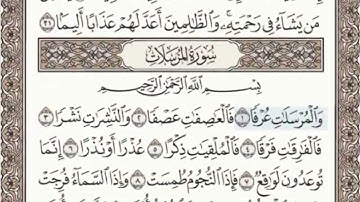 مَن يَشَآءُ فِى رَحْمَتِهِۦ ۚ وَٱلظَّٰلِمِينَ أَعَدَّ لَهُمْ عَذَابًا أَلِيمًۢا ٣١
سُورَةُ المُرْسَلَات
بِسْمِ ٱللَّهِ ٱلرَّحْمَٰنِ ٱلرَّحِيمِ
وَٱلْمُرْسَلَٰتِ عُرْفًا ١ فَٱلْعَٰصِفَٰتِ عَصْفًا ٢ وَٱلنَّٰشِرَٰتِ نَشْرًا ٣
فَٱلْفَٰرِقَٰتِ فَرْقًا ٤ فَٱلْمُلْقِيَٰتِ ذِكْرًا ٥ عُذْرًا أَوْ نُذْرًا ٦ إِنَّمَا
تُوعَدُونَ لَوَٰقِعٌ ٧ فَإِذَا ٱلنُّجُومُ طُمِسَتْ ٨ وَإِذَا ٱلسَّمَآءُ فُرِجَتْ